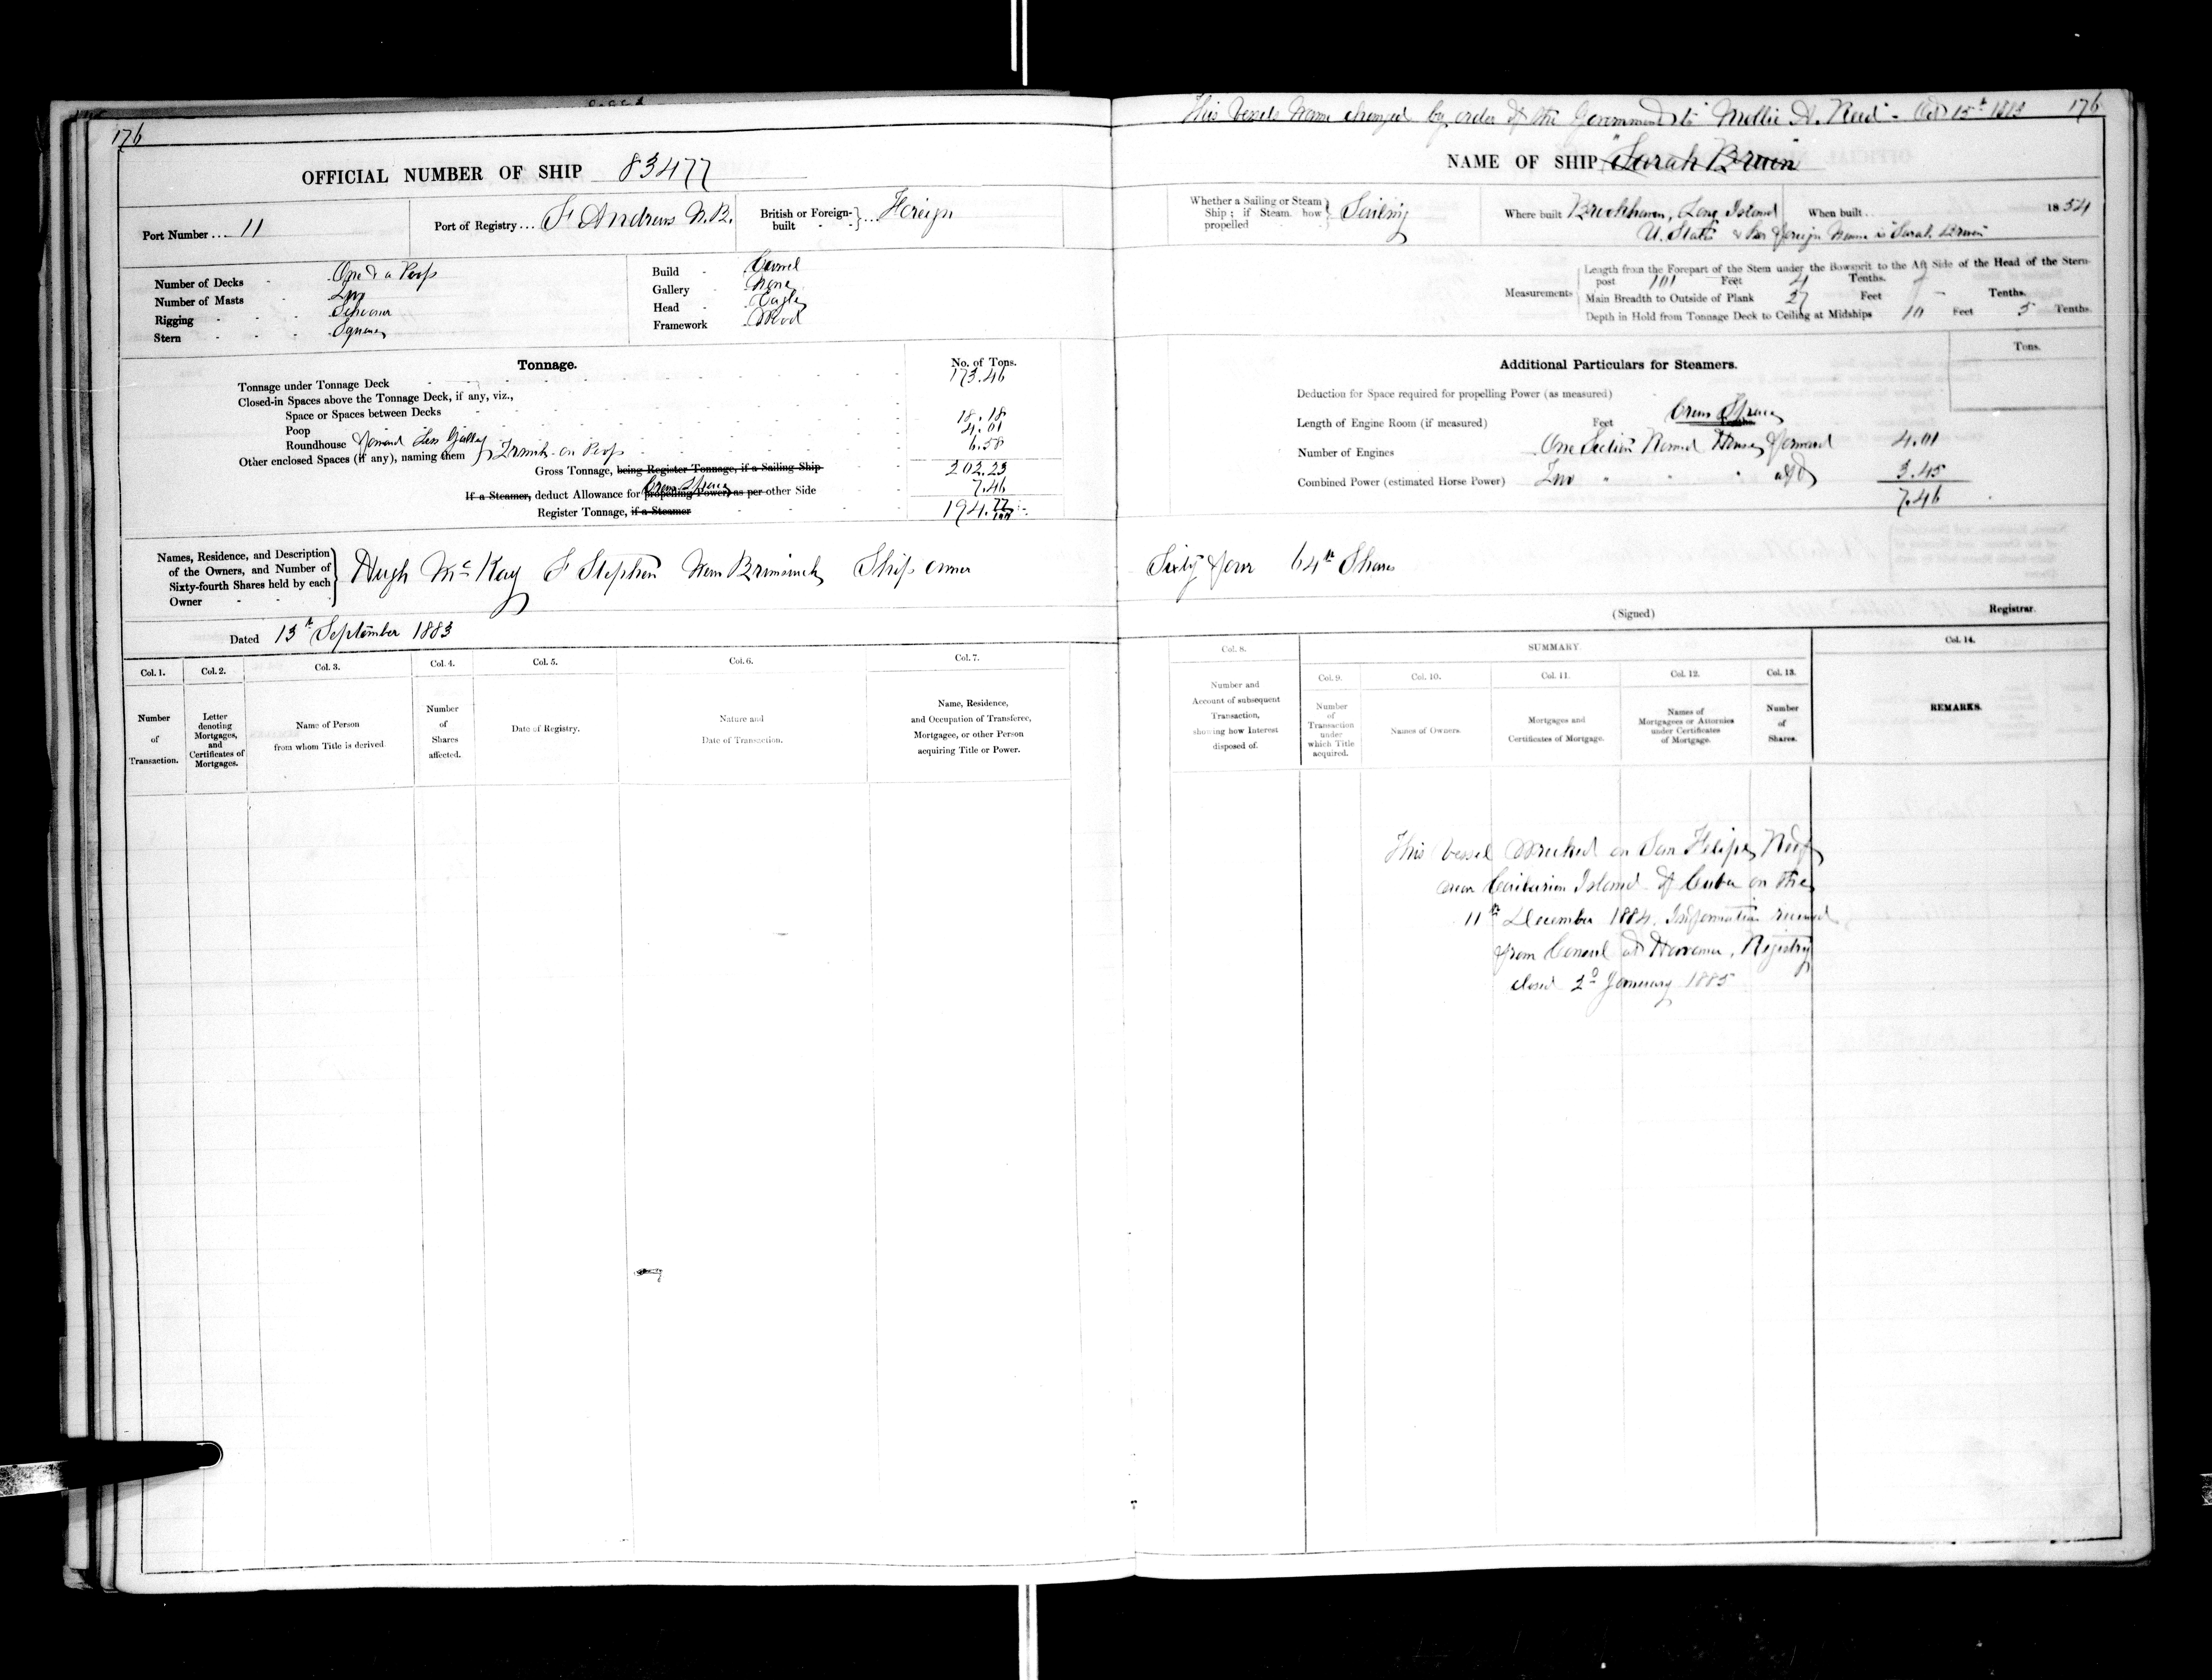 176
OFFICIAL NUMBER OF SHIP 83477
Port Number ... 11
Port of Registry ... St Andrews N.B.
British or Foreign-built } ... Foreign
Number of Decks - One & a Poop
Number of Masts - Two
Rigging - Schooner
Stern - Square
Build - Carvel
Gallery - None
Head - Eagle
Framework - Wood
Tonnage.
No. of Tons.
Tonnage under Tonnage Deck 173.46
Closed-in Spaces above the Tonnage Deck, if any, viz.,
Space or Spaces between Decks
Poop 18.18
Roundhouse forward less Galley 4.01
Other enclosed Spaces (if any), naming them } Trunk on Poop 6.58
Gross Tonnage, being Register Tonnage, if a Sailing Ship 202.23
Crew Space
If a Steamer, deduct Allowance for propelling Power, as per other Side 7.46
Register Tonnage, if a Steamer 194.77/100
Names, Residence, and Description of the Owners, and Number of Sixty-fourth Shares held by each Owner } Hugh McKay St Stephen New Brunswick Ship owner
Dated 13th September 1883
Col. 1. Col. 2. Col. 3. Col. 4. Col. 5. Col. 6. Col. 7.
Number of Transaction.
Letter denoting Mortgages, and Certificates of Mortgages.
Name of Person from whom Title is derived.
Number of Shares affected.
Date of Registry.
Nature and Date of Transaction.
Name, Residence, and Occupation of Transferee, Mortgagee, or other Person acquiring Title or Power.
This Vessels Name changed by order of the Government to "Mollie A. Reed" - Oct 15th 1883
176
NAME OF SHIP "Sarah Bruen"
Whether a Sailing or Steam Ship; if Steam how propelled } Sailing
Where built Brookhaven, Long Island
U. States & her foreign Name is Sarah Bruen
When built .. 1854
Measurements
Length from the Forepart of the Stem under the Bowsprit to the Aft Side of the Head of the Stern-
post 101 Feet 4 Tenths.
Main Breadth to Outside of Plank 27 Feet - Tenths.
Depth in Hold from Tonnage Deck to Ceiling at Midships 10 Feet 5 Tenths.
Additional Particulars for Steamers.
Tons.
Deduction for Space required for propelling Power (as measured)
Length of Engine Room (if measured) Feet Crew Space
Number of Engines One Section Round House forward 4.01
Combined Power (estimated Horse Power) Two " " " aft 3.45
7.46
Sixty four 64th Shares
(Signed) Registrar.
Col. 8. SUMMARY. Col. 14.
Col. 9. Col. 10. Col. 11. Col. 12. Col. 13.
Number and Account of subsequent Transaction, showing how Interest disposed of.
Number of Transaction under which Title acquired.
Names of Owners.
Mortgages and Certificates of Mortgage.
Names of Mortgagees or Attornies under Certificates of Mortgage.
Number of Shares.
REMARKS.
This Vessel Wrecked on San Felipe Reef
near Caibarien Island of Cuba on the
11th December 1884. Information received
from Consul at Havana, Registry
closed 2d January 1885